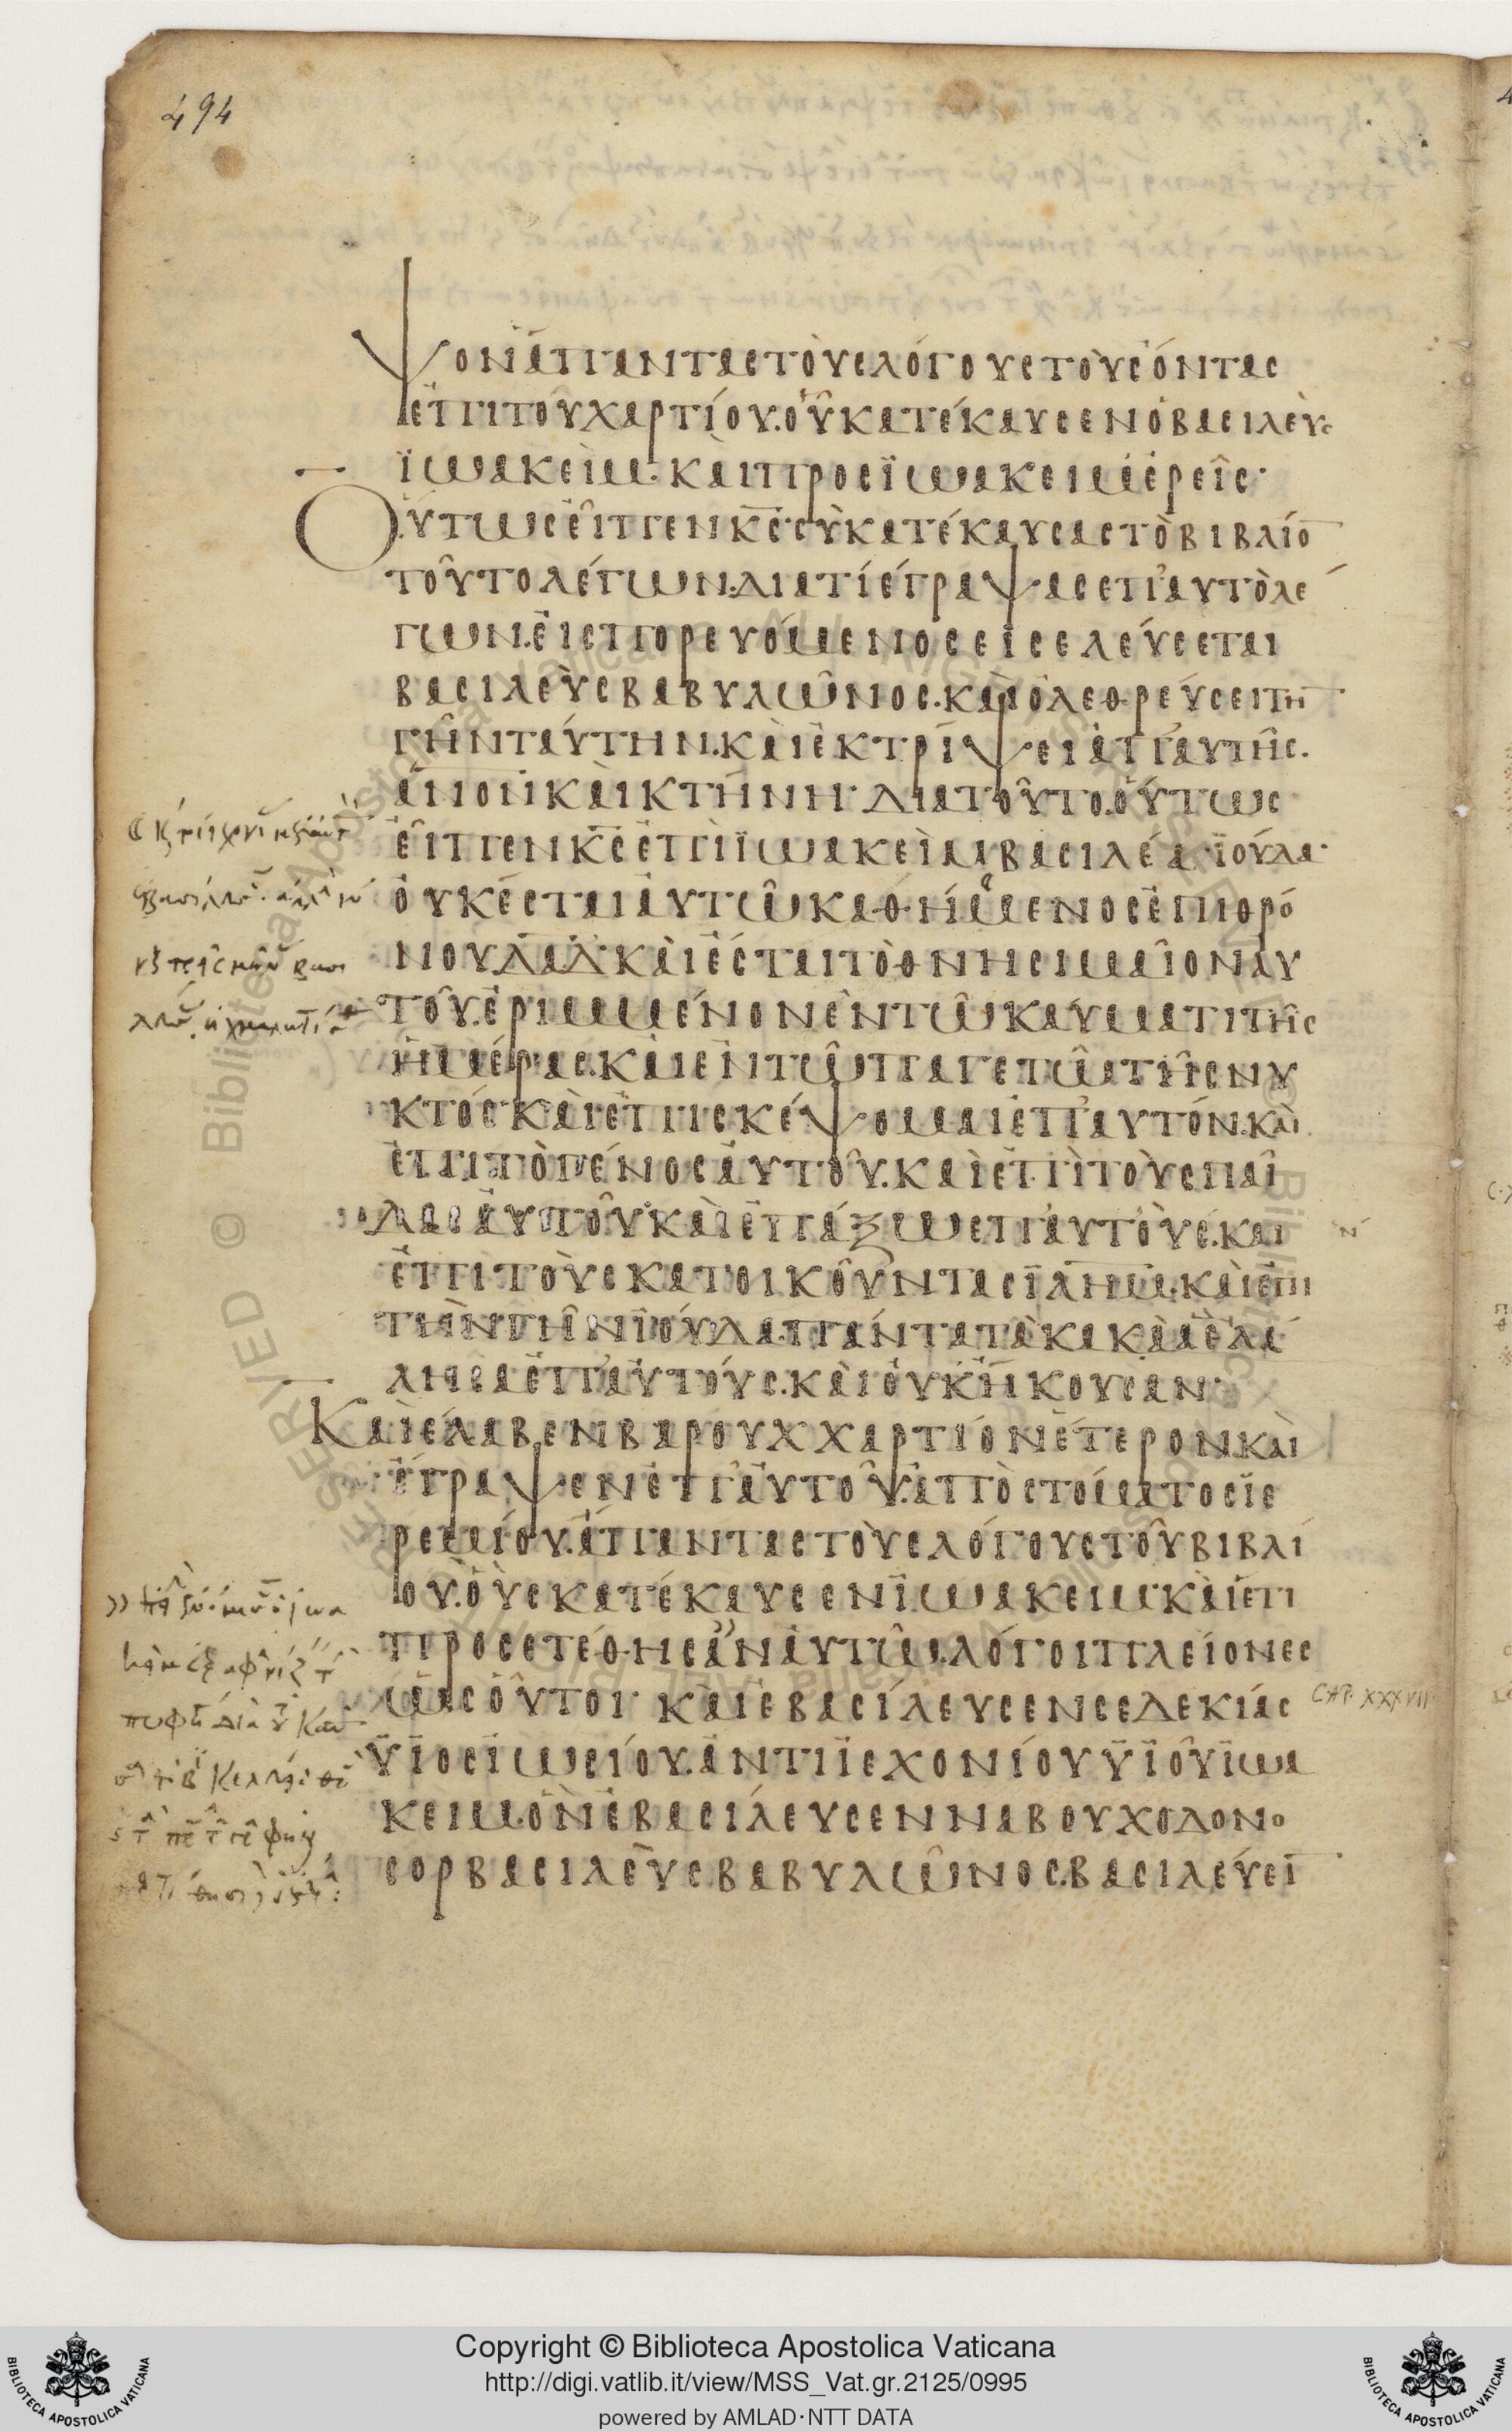 494
ψονἅπαντας τοὺς λόγους τοὺς ὄντας
ἐπὶ τοῦ χαρτίου. οὓς κατέκαυσεν ὁ βασιλεὺς
ϊωακεὶμ. καὶ προς ϊωακειμ ἐρεῖς·
Οὕτως εἶπεν κ̅ς̅· σὺ κατέκαυσας τὸ βιβλίο̅
τοῦτο λέγων. διατί ἔγραψας ἐπ' αυτὸ λέ
γων. εἰσπορευόμενος εἰσελεύσεται
βασιλεὺς βαβυλῶνος. καὶ ὀλεθρεύσει τὴ̅
γῆν ταύτην. καὶ ἐκτρίψει ἀπ' αυτῆς.
α̅ν̅ο̅ν̅ καὶ κτήνη· διατοῦτο. οὕτως
εἶπεν κ̅ς̅ ἐπὶ ϊωακεὶμ βασιλέα ϊούδα·
ὀυκ έσται ἀυτῶ καθήμενος ἐπι θρό
νου δ̅α̅δ̅· καὶ ἔσται τὸ θνησιμαῖον αυ
τοῦ. ἐριμμένον ἐν τῶ καύματι τῆς
ἡμέρας. καὶ ἐν τῶ παγετῶ τῆς νυ
κτός· καὶ ἐπισκέψομαι ἐπ' αυτόν. καὶ
ἐπι τὸ γένος ἀυτοῦ. καὶ ἐπὶ τοὺς παῖ
δας ἀυτοῦ· καὶ ἐπάξω επ' αυτοὺς. και
ἐπι τοὺς κατοικοῦντας ϊ̅λ̅η̅μ̅. καὶ ἐπι
τὴν γῆν ϊούδα. πάντα τὰ κακὰ ἃ ἐλά
λησα ἐπ' αυτούς. καὶ ὀυκ ἤκουσαν·
Καὶ ἔλαβεν βαρουχ χαρτίον ἕτερον. καὶ
ἔγραψεν ἐπ' ἀυτοῦ. ἀπὸ στόματος ϊε
ρεμίου. ἅπαντας τοὺς λόγους τοῦ βιβλί
ου. ὃυς κατέκαυσεν ϊωακειμ· καὶ ἔτι
προσετέθησαν ἀυτῶ. λόγοι πλείονες
ὡς οὗτοι· καὶ ἐβασίλευσεν σεδεκίας
ϋϊος ϊωσίου. ἀντὶ ϊεχονίου ϋϊοῦ ϊωα
κειμ. ὃν ἐβασίλευσεν ναβουχοδονο
σορ βασιλεὺς βαβυλῶνος. βασιλεύει̅
CAP. XXXVII
Copyright © Biblioteca Apostolica Vaticana
http://digi.vatlib.it/view/MSS_Vat.gr.2125/0995
powered by AMLAD·NTT DATA
BIBLIOTECA APOSTOLICA VATICANA
BIBLIOTECA APOSTOLICA VATICANA